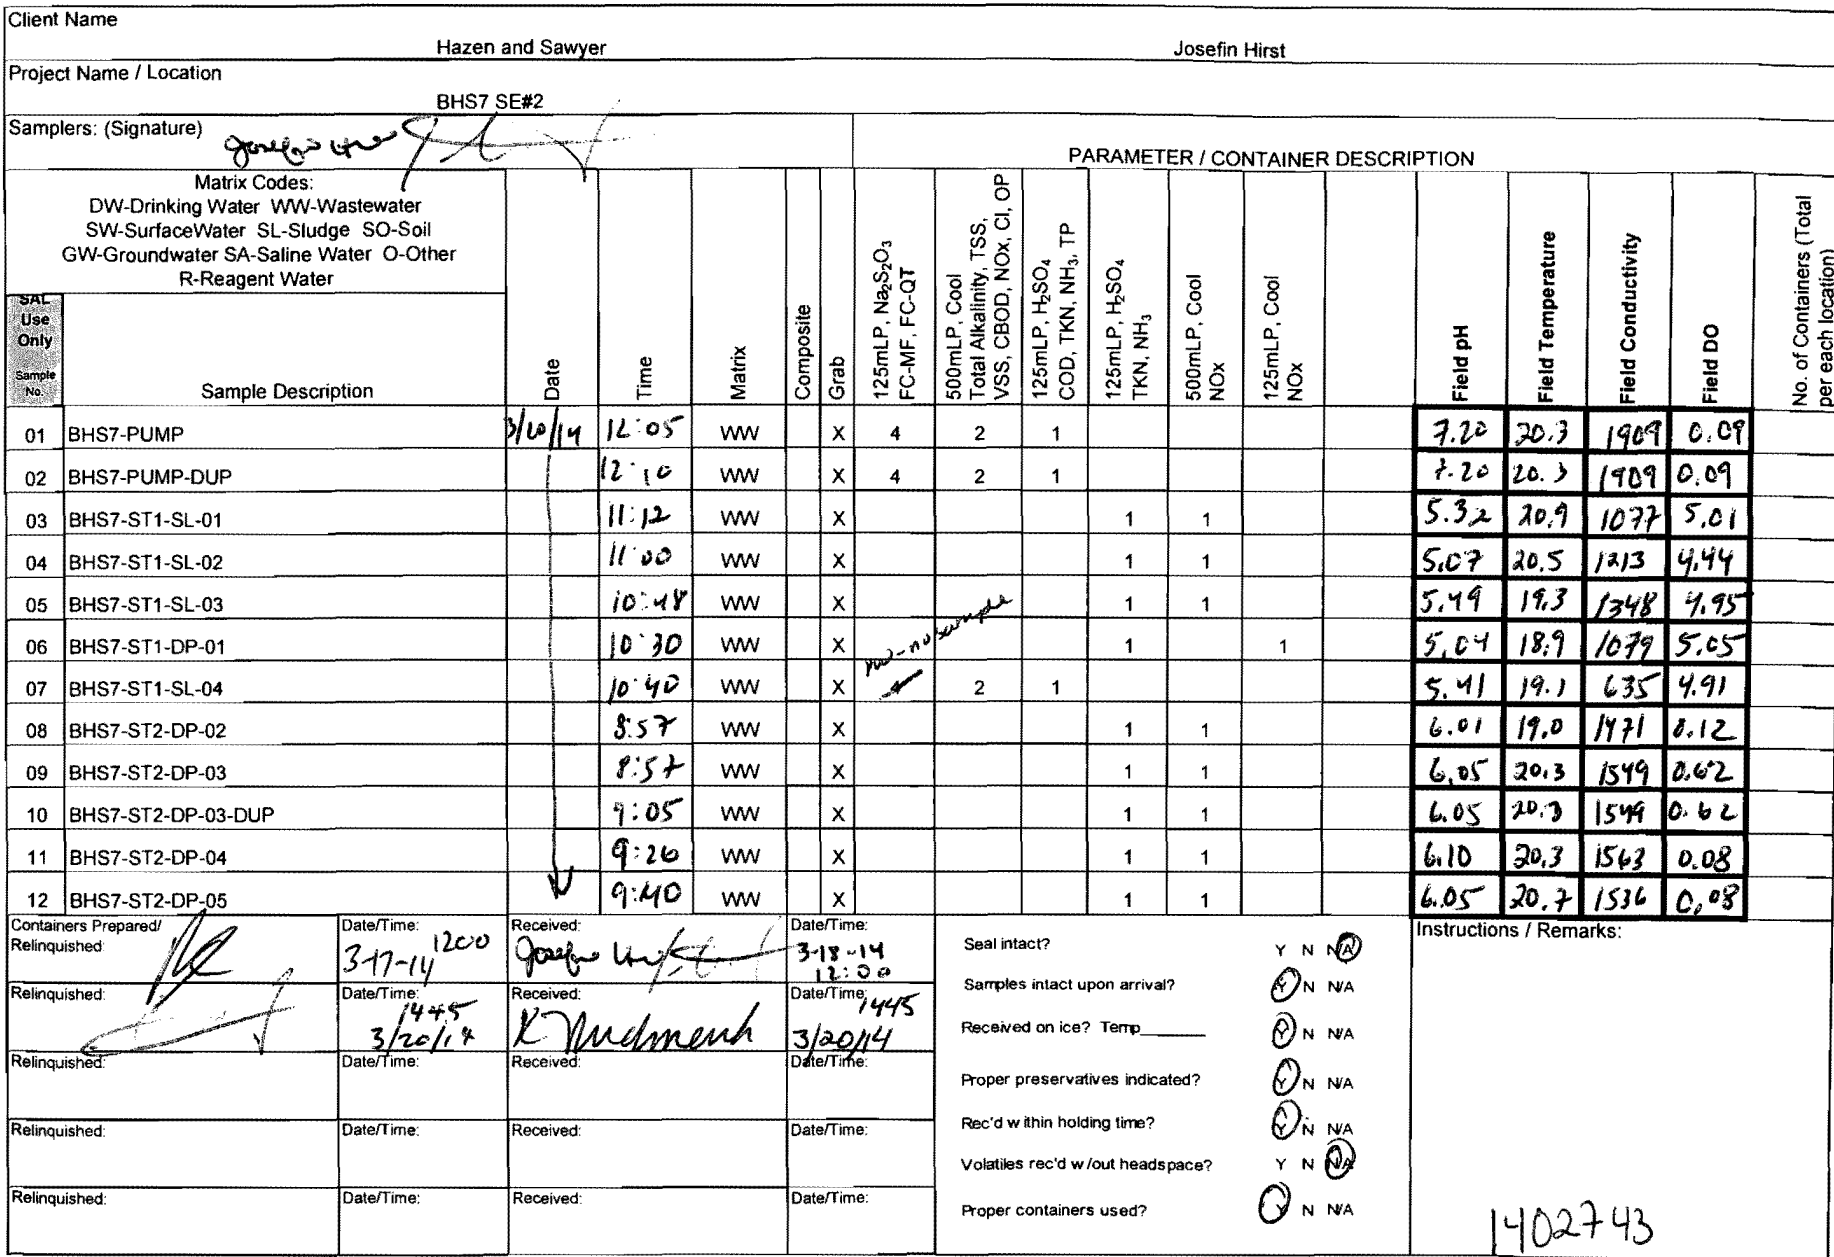 Client Name
Hazen and Sawyer Josefin Hirst
Project Name / Location
BHS7 SE#2
Samplers: (Signature)
PARAMETER / CONTAINER DESCRIPTION
Matrix Codes:
DW-Drinking Water WW-Wastewater
SW-SurfaceWater SL-Sludge SO-Soil
GW-Groundwater SA-Saline Water O-Other
R-Reagent Water
SAL
Use
Only
Sample
No.
Sample Description
Date
Time
Matrix
Composite
Grab
125mLP, Na2S2O3
FC-MF, FC-QT
500mLP, Cool
Total Alkalinity, TSS,
VSS, CBOD, NOx, Cl, OP
125mLP, H2SO4
COD, TKN, NH3, TP
125mLP, H2SO4
TKN, NH3
500mLP, Cool
NOx
125mLP, Cool
NOx
Field pH
Field Temperature
Field Conductivity
Field DO
No. of Containers (Total
per each location)
01 BHS7-PUMP 3/20/14 12:05 WW X 4 2 1 7.20 20.3 1909 0.09
02 BHS7-PUMP-DUP 12:10 WW X 4 2 1 7.20 20.3 1909 0.09
03 BHS7-ST1-SL-01 11:12 WW X 1 1 5.32 20.9 1077 5.01
04 BHS7-ST1-SL-02 11:00 WW X 1 1 5.07 20.5 1213 4.44
05 BHS7-ST1-SL-03 10:48 WW X 1 1 5.49 19.3 1348 4.95
no sample
06 BHS7-ST1-DP-01 10:30 WW X 1 1 5.04 18.9 1079 5.05
07 BHS7-ST1-SL-04 10:40 WW X 2 1 5.41 19.1 635 4.91
08 BHS7-ST2-DP-02 8:57 WW X 1 1 6.01 19.0 1471 0.12
09 BHS7-ST2-DP-03 8:57 WW X 1 1 6.05 20.3 1549 0.62
10 BHS7-ST2-DP-03-DUP 9:05 WW X 1 1 6.05 20.3 1549 0.62
11 BHS7-ST2-DP-04 9:26 WW X 1 1 6.10 20.3 1563 0.08
12 BHS7-ST2-DP-05 9:40 WW X 1 1 6.05 20.7 1536 0.08
Containers Prepared/
Relinquished: Date/Time: 3-17-14 1200 Received: Date/Time: 3-18-14 12:00
Relinquished: Date/Time: 1445 3/20/14 Received: Date/Time: 1445 3/20/14
Relinquished: Date/Time: Received: Date/Time:
Relinquished: Date/Time: Received: Date/Time:
Relinquished: Date/Time: Received: Date/Time:
Seal intact? Y N NA
Samples intact upon arrival? Y N N/A
Received on ice? Temp______ Y N N/A
Proper preservatives indicated? Y N N/A
Rec'd within holding time? Y N N/A
Volatiles rec'd w/out headspace? Y N NA
Proper containers used? Y N N/A
Instructions / Remarks:
1402743